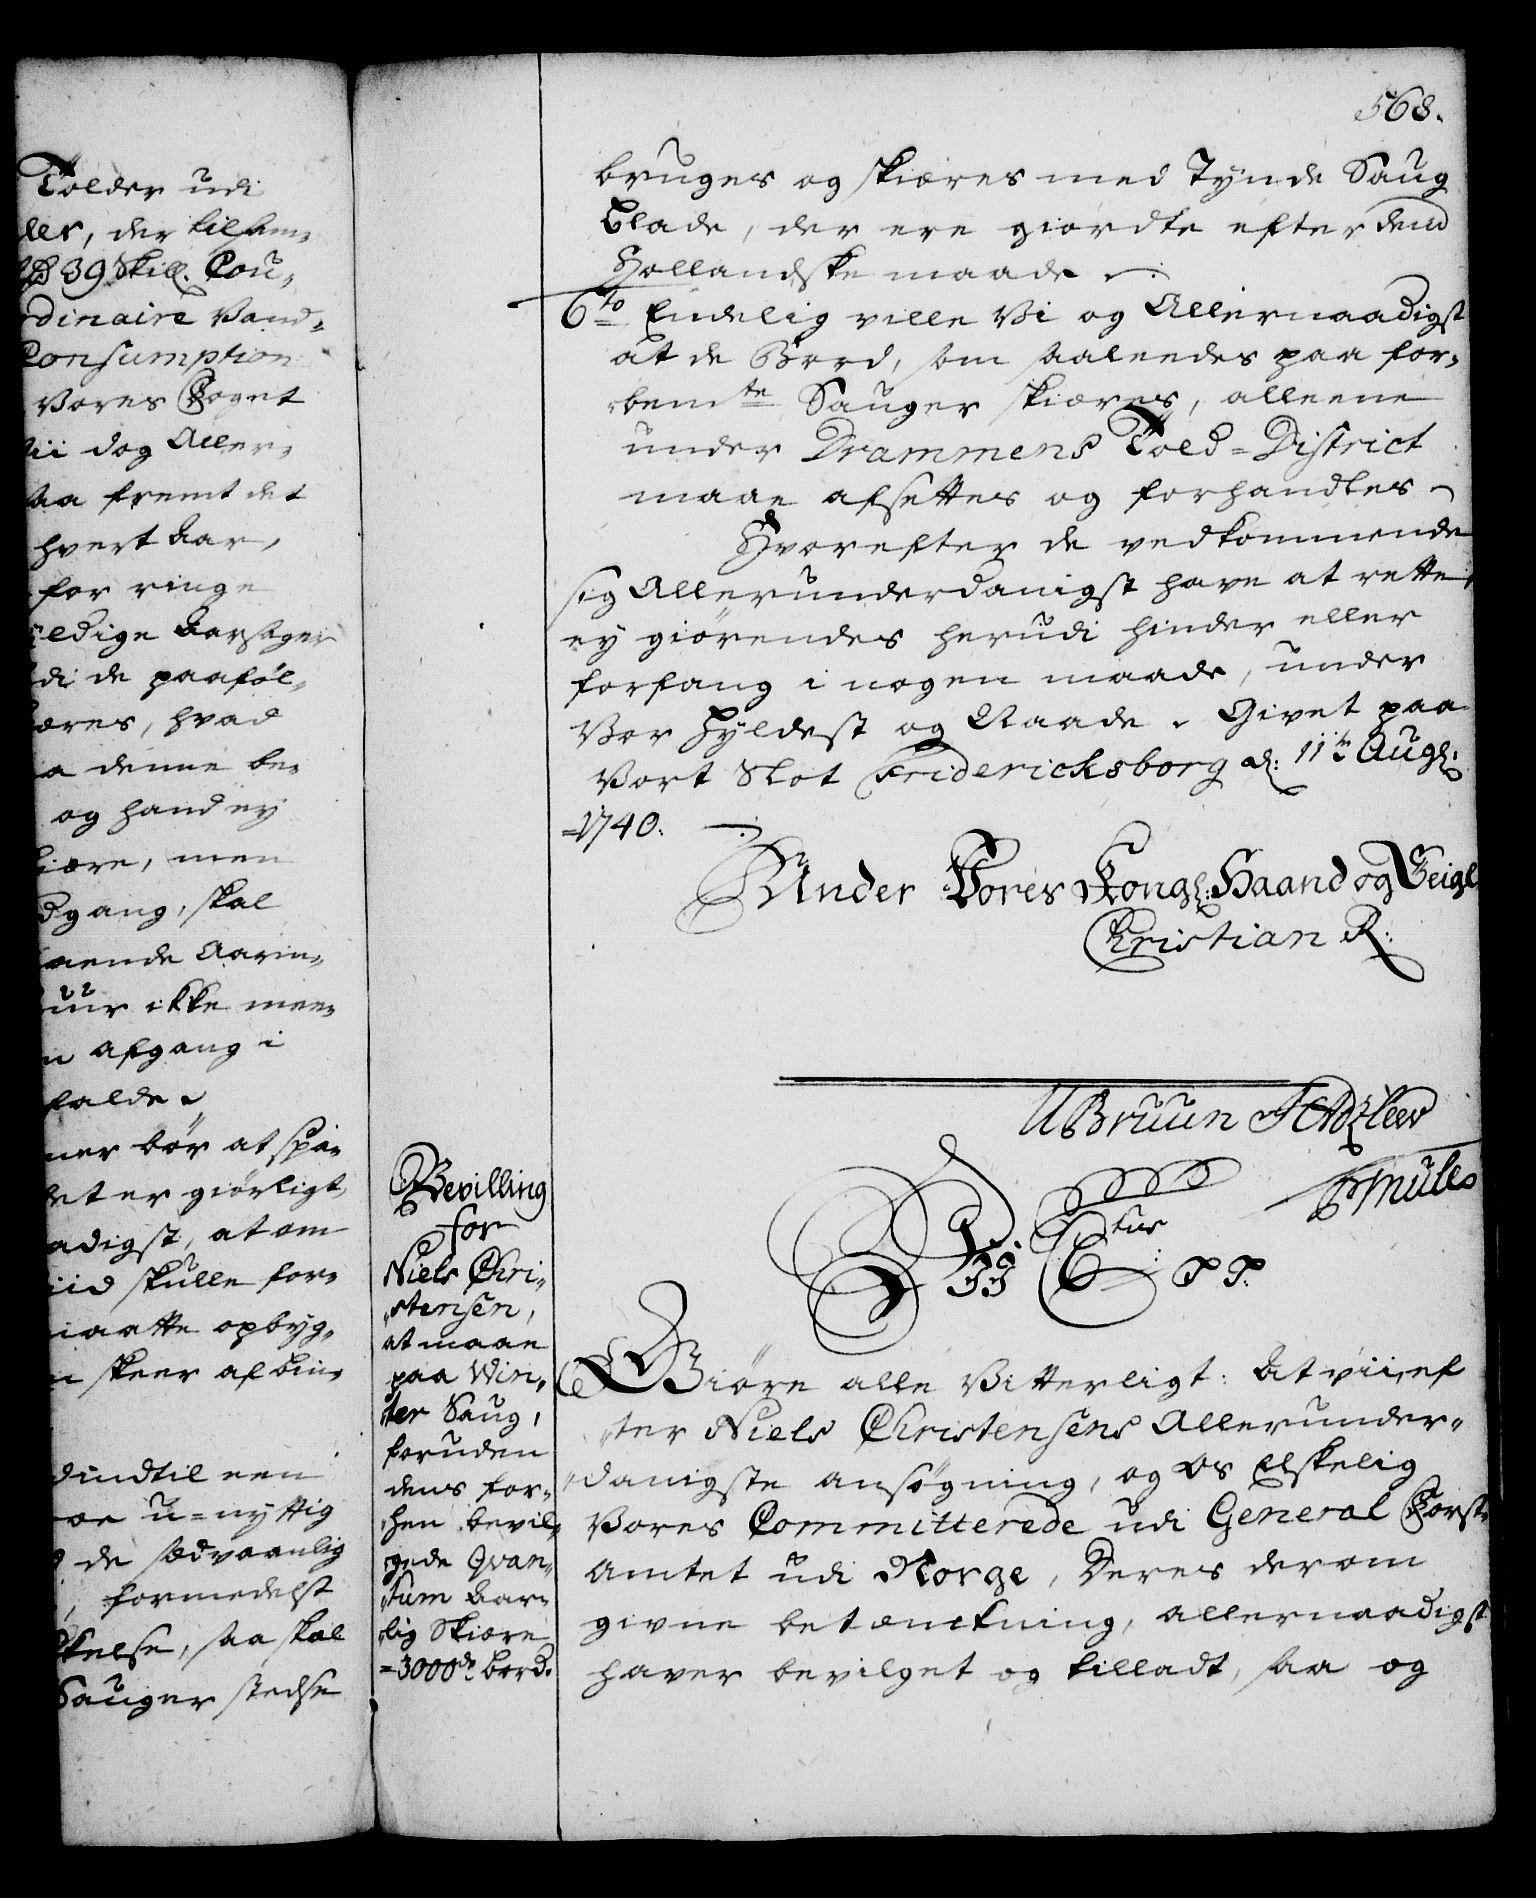 568.
Tolder udi
ler, der tilsam„
39 Skill. Cou„
dinaire Vand„
Consumption
Vores Foget
vii dog Aller„
saa fremt det
hvert Aar,
for ringe
yldige Aarsager
di de paaföl„
æres, hvad
a denne be„
og hand ey
kiære, men
dgang, skal
aende Aarin„
uur ikke mee„
n afgang i
falde.
ner bör at spa„
det er giörligt,
adigst, at om
iid skulle for„
maatte opbyg„
n skeer af bin„
dindtil een
oe u=nyttig
de sædvaanlig
, formedelst
kelse, saa skal
Sauger stedse
bruges og skiæres med Tynde Saug
Blade, der ere giordte efter dend
Hollandske maade.
6to Endelig ville Vi og Allernaadigst
at de Bord, som saaleedes paa for„
„bemte Sauger skiæres, alleene
under Drammens Told=District
maae afsettes og forhandles
Hvorefter de vedkommende
sig Allerunderdanigst have at rette,
ey giörendes herudi hinder eller
forfang i nogen maade, under
Vor hyldest og Naade. Givet paa
Vort Slot Fridericksborg d: 11te Aug:
=1740.
Under Vores Kongl: Haand og Seigl
Christian R:
UBruun FAdeler
Mules
Bevilling
for
Niels Chri„
„stensen,
at maae
paa Win„
„ter Saug,
foruden
dens for„
„hen bevil„
„gede Qvan„
„tum Aar„
„lig Skiære
=3000de bord.
C 6tus P P.
Giöre alle Vitterligt: At vii, ef
„ter Niels Christensens Allerunder„
„danigste ansögning, og Os Elskelig
Vores Committerede udi General Forst„
Amtet udi Norge, Deres derom
givne betænckning, allernaadigst
haver bevilget og tilladt, saa og